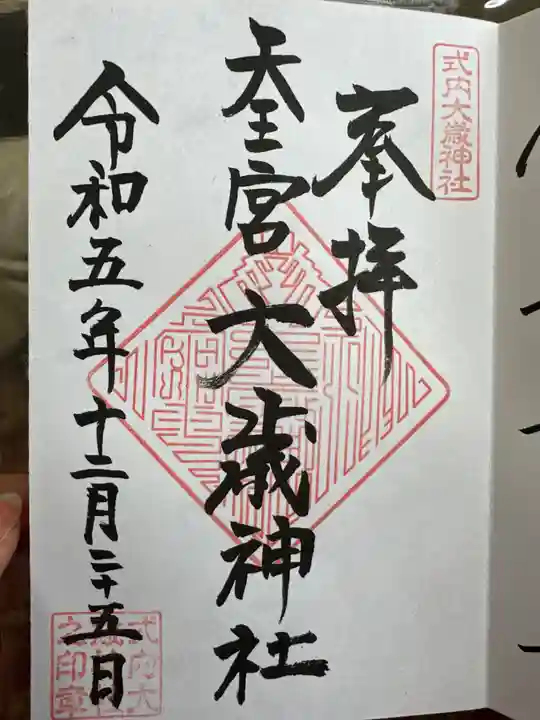 式内大歳神社
奉拝
天王宮大歳神社
令和五年十二月二十五日
式内大
之印章